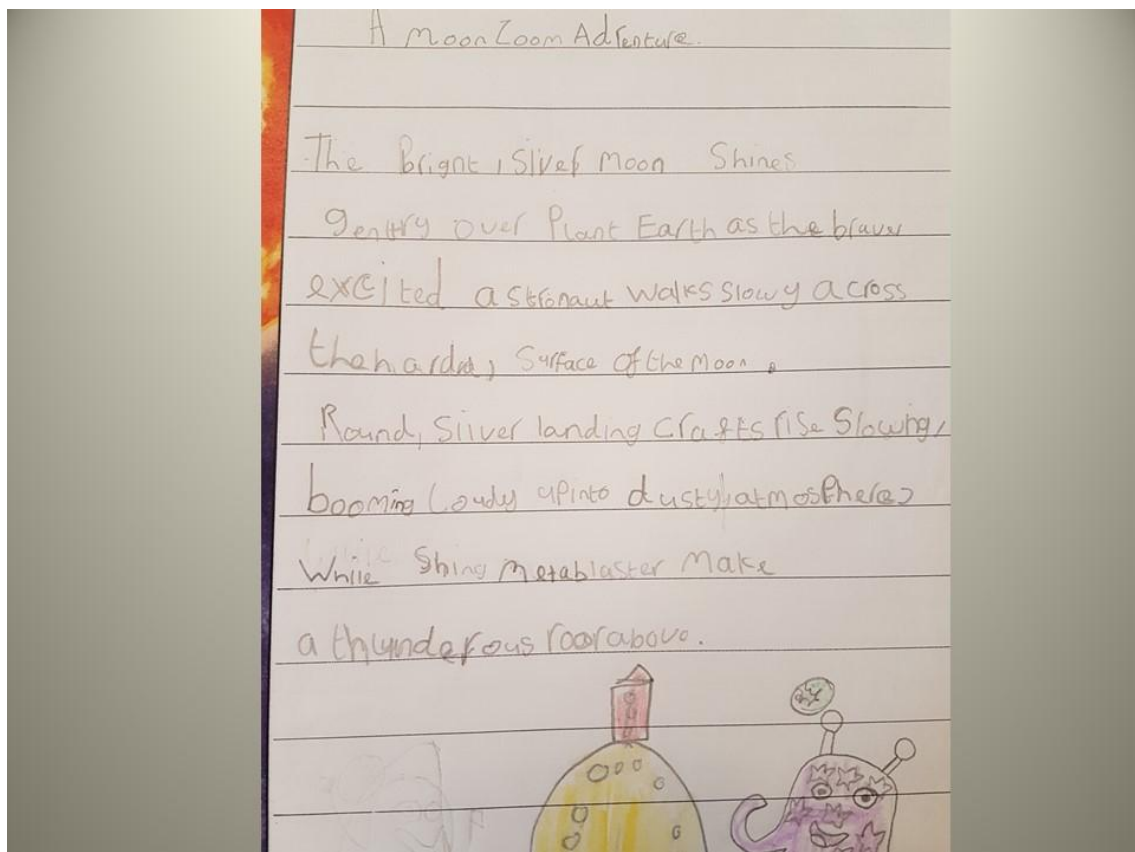 A Moon Zoom Adventure.
The Bright, Sliver Moon Shines
gentry over Plant Earth as the braver
excited astronaut walks slowy across
the hard, Surface of the Moon.
Round, Sliver landing crafts rise Slowing,
booming loudy up into dusty, atmosphere,
While Shing metablaster Make
a thunderous roar above.